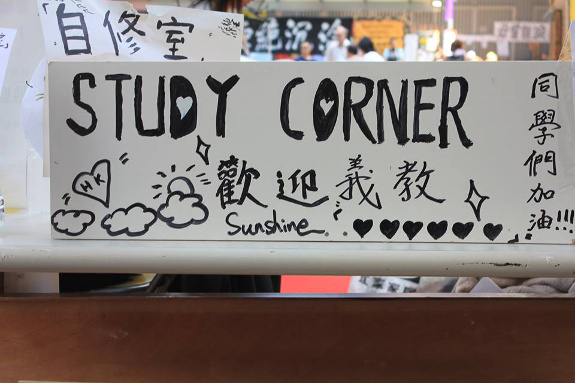 自修室
STUDY CORNER
HK
歡迎義教
Sunshine
同學們加油!!!